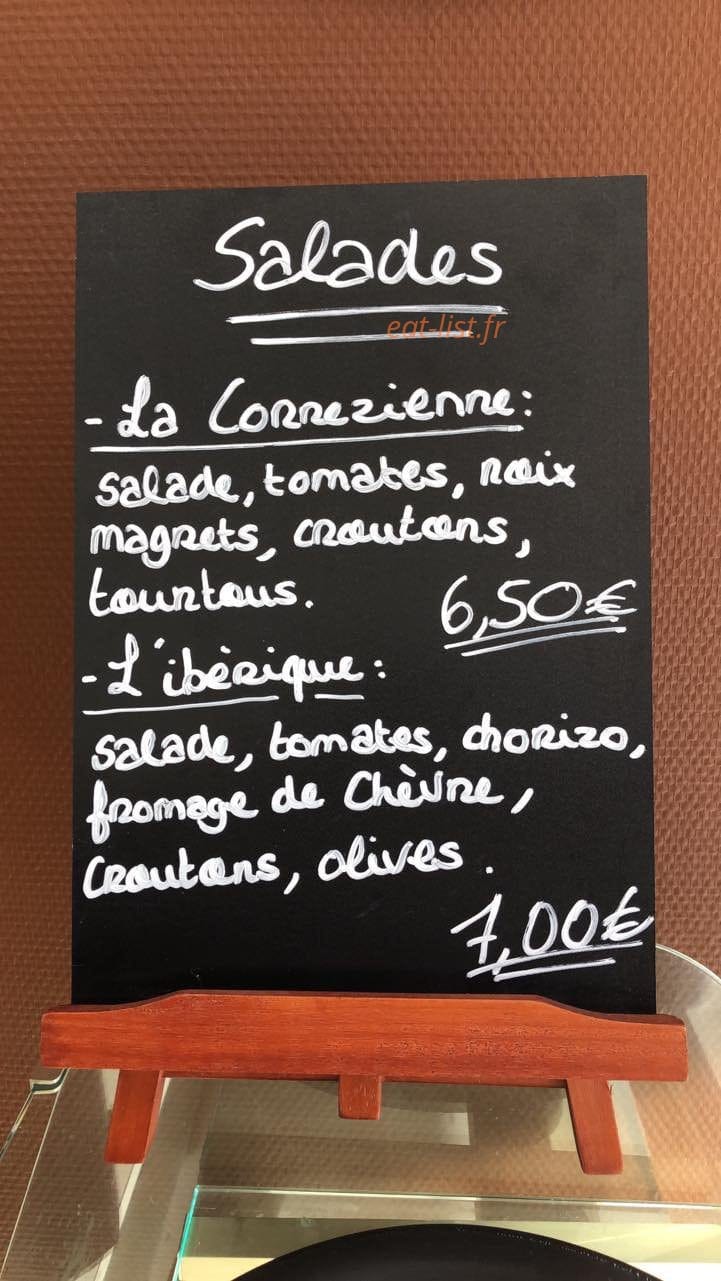 Salades
eat-list.fr
- La Correzienne:
salade, tomates, noix
magrets, croutons,
tourtous.
6,50€
- L'ibèrique:
salade, tomates, chorizo,
fromage de Chèvre,
Croutons, olives.
7,00€